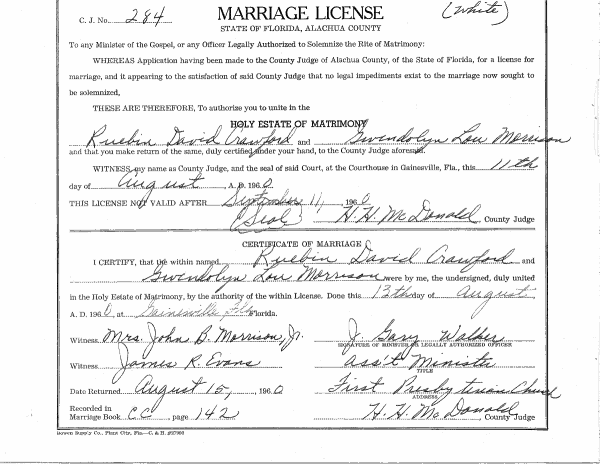 C. J. No. 284 MARRIAGE LICENSE (White)
STATE OF FLORIDA, ALACHUA COUNTY
To any Minister of the Gospel, or any Officer Legally Authorized to Solemnize the Rite of Matrimony:
WHEREAS Application having been made to the County Judge of Alachua County, of the State of Florida, for a license for
marriage, and it appearing to the satisfaction of said County Judge that no legal impediments exist to the marriage now sought to
be solemnized,
THESE ARE THEREFORE, To authorize you to unite in the
HOLY ESTATE OF MATRIMONY
Ruebin David Crawford and Gwendolyn Lou Morrison
and that you make return of the same, duly certified under your hand, to the County Judge aforesaid.
WITNESS my name as County Judge, and the seal of said Court, at the Courthouse in Gainesville, Fla., this 11th
day of August, A. D. 1960
THIS LICENSE NOT VALID AFTER September 11, 1960
(Seal) H. H. McDonald County Judge
CERTIFICATE OF MARRIAGE
I CERTIFY, that the within named Ruebin David Crawford and
Gwendolyn Lou Morrison were by me, the undersigned, duly united
in the Holy Estate of Matrimony, by the authority of the within License. Done this 13th day of August,
A. D. 1960, at Gainesville Fla Florida.
Witness Mrs. John B. Morrison, Jr. J. Gary Walker
SIGNATURE OF MINISTER OR LEGALLY AUTHORIZED OFFICER
Witness James R. Evans ass't Minister
TITLE
Date Returned August 15, 1960 First Presbyterian Church
ADDRESS
Recorded in
Marriage Book CC page 142 H. H. McDonald County Judge
Bowen Supply Co., Plant City, Fla.—C. & H.